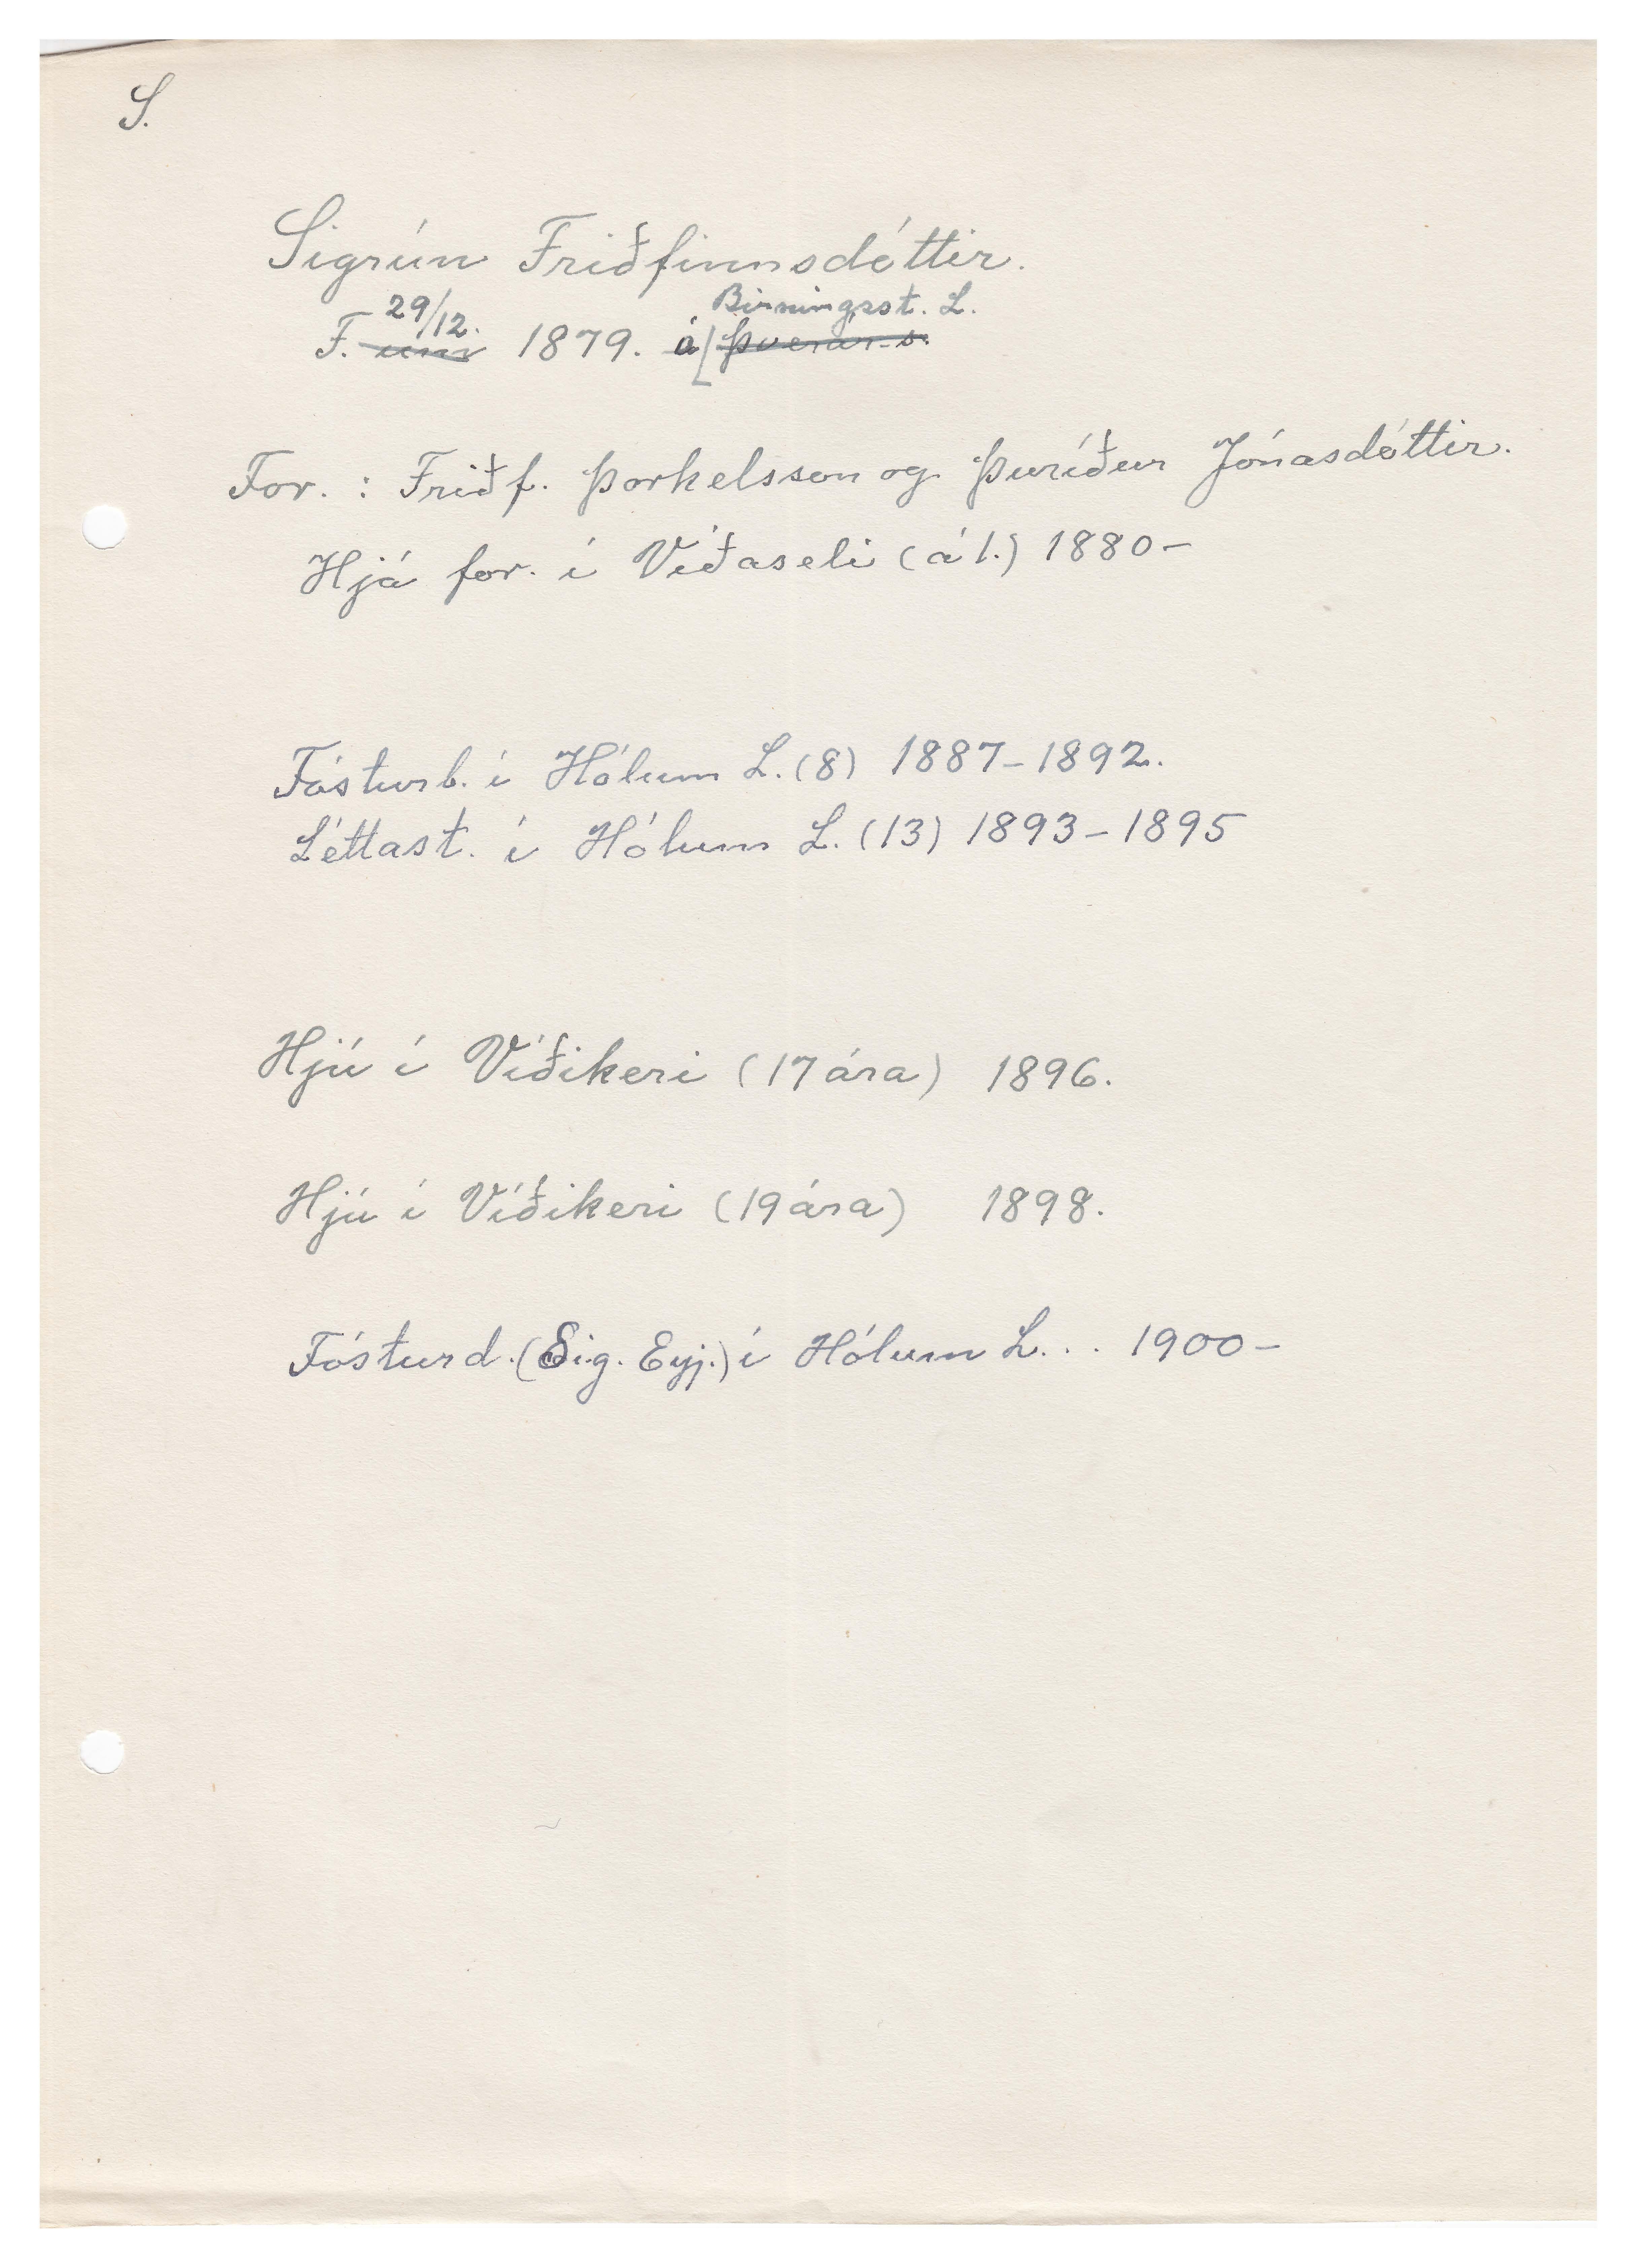 S.
Sigrún Friðfinnsdóttir.
29/12. Birningsst. L.
F. um 1879. á Þverár-s.
For. : Friðf. Þorkelsson og Þuríður Jónasdóttir.
Hjá for. í Víðaseli (á 1.) 1880-
Fósturb. í Hólum L. (8) 1887-1892.
Léttast. í Hólum L. (13) 1893-1895
Hjú í Víðikeri (17 ára) 1896.
Hjú í Víðikeri (19 ára) 1898.
Fósturd. (Sig. Eyj.) í Hólum L. . . 1900-